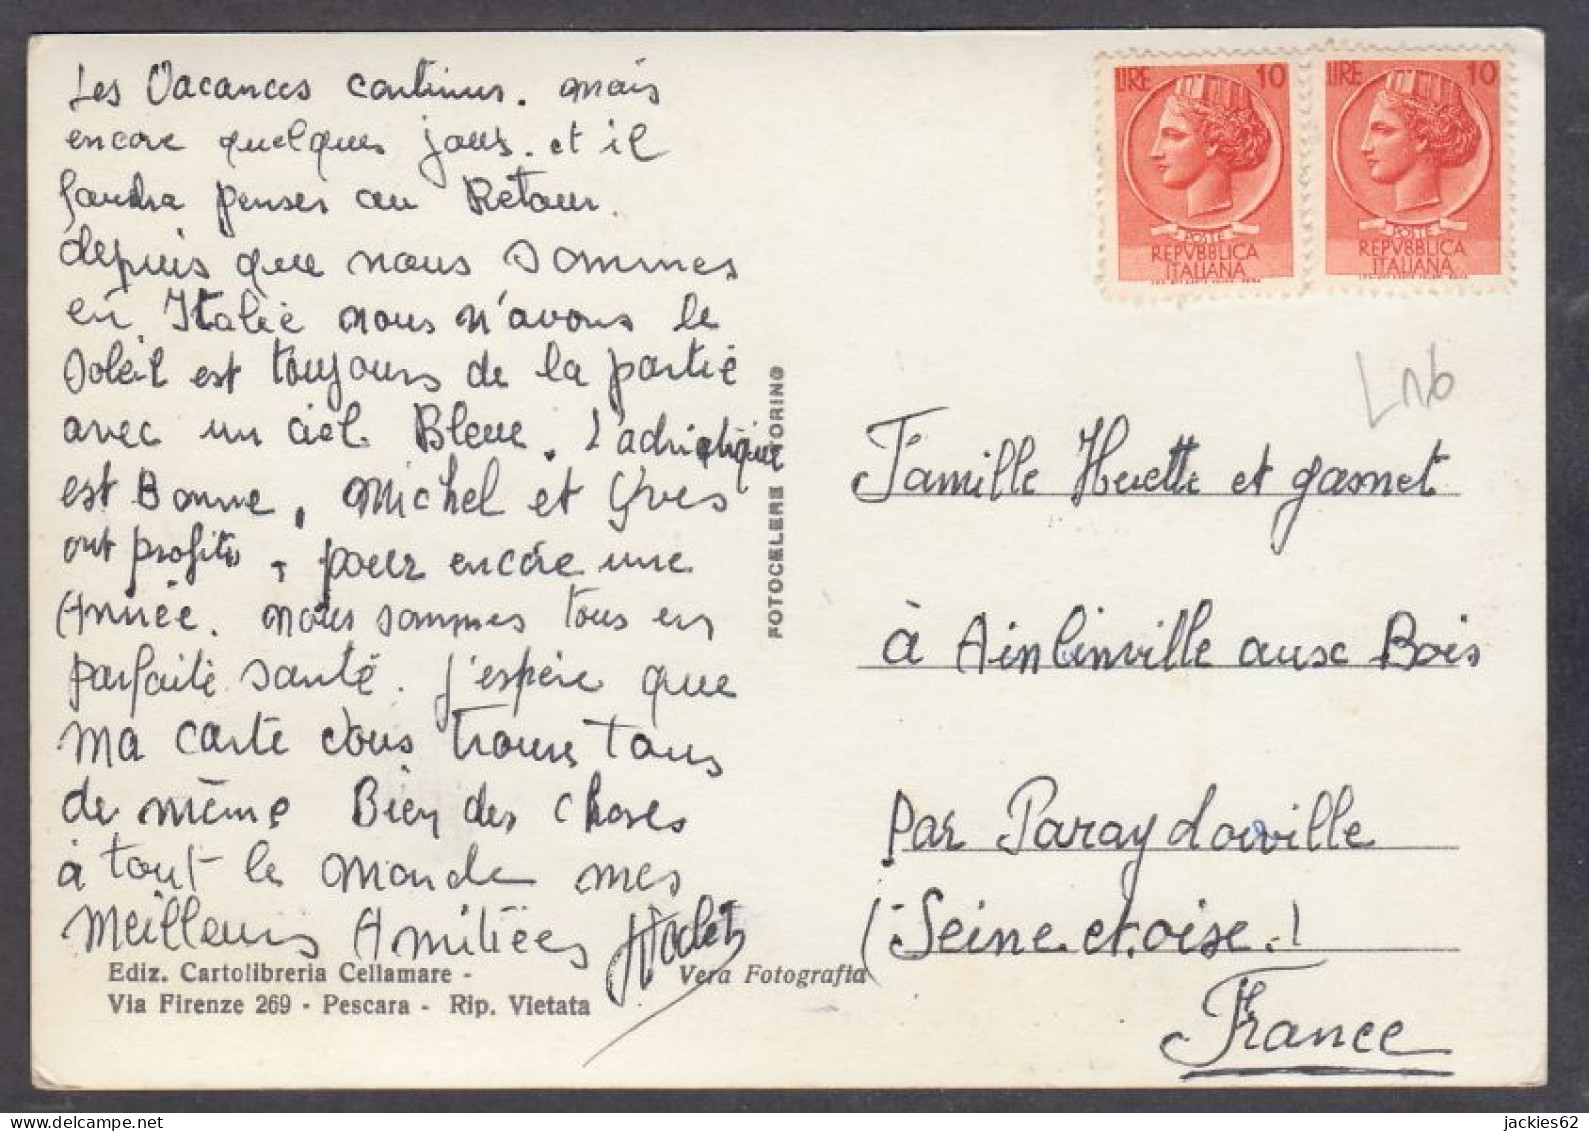 Les Vacances continus. mais
encore quelques jours. et il
faudra penser au Retour.
depuis que nous sommes
en Italie nous n'avons le
soleil est toujours de la partie
avec un ciel Bleue. L'adriatique
est Bonne, Michel et Yves
ont profités, pour encore une
Année. nous sommes tous en
parfaite santé. j'espère que
ma carte vous trouve tous
de même Bien des choses
à tout le monde mes
Meilleurs Amitiées
Ediz. Cartolibreria Cellamare -
Via Firenze 269 - Pescara - Rip. Vietata
Vera Fotografia
FOTOCELERE TORINO
LIRE 10
POSTE
REPVBBLICA
ITALIANA
LIRE 10
POSTE
REPVBBLICA
ITALIANA
Famille Huette et gasnet
à Ainlinville aux Bois
Par Paray douville
(Seine et oise.)
France
jackies62